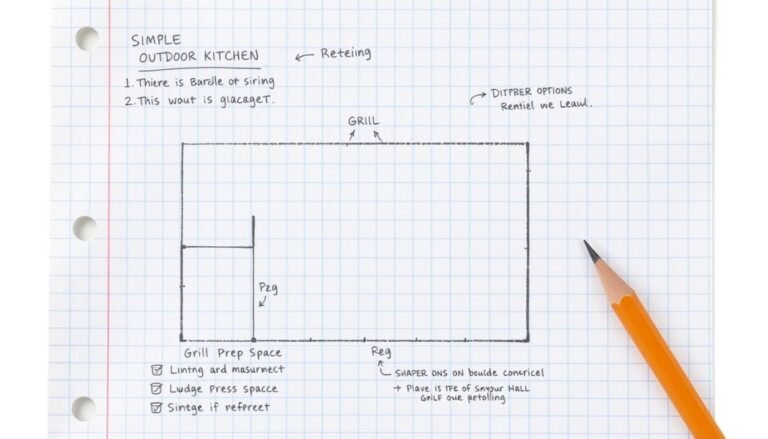 SIMPLE
OUTDOOR KITCHEN
Reteiing
1. Thiere is Bardle ot siring
2. This wout is glacageT.
DITPBER OPTIONS
Rentiel we Leawl.
GRIIL
Pzg
Grill Prep Space
Reg
Lintng and masurnect
Ludge Press spacce
Sintge if referreet
SHAPER ONS ON beulde concricel
+ Plave is TFE of Snyour HALL
GRILF oue petolling